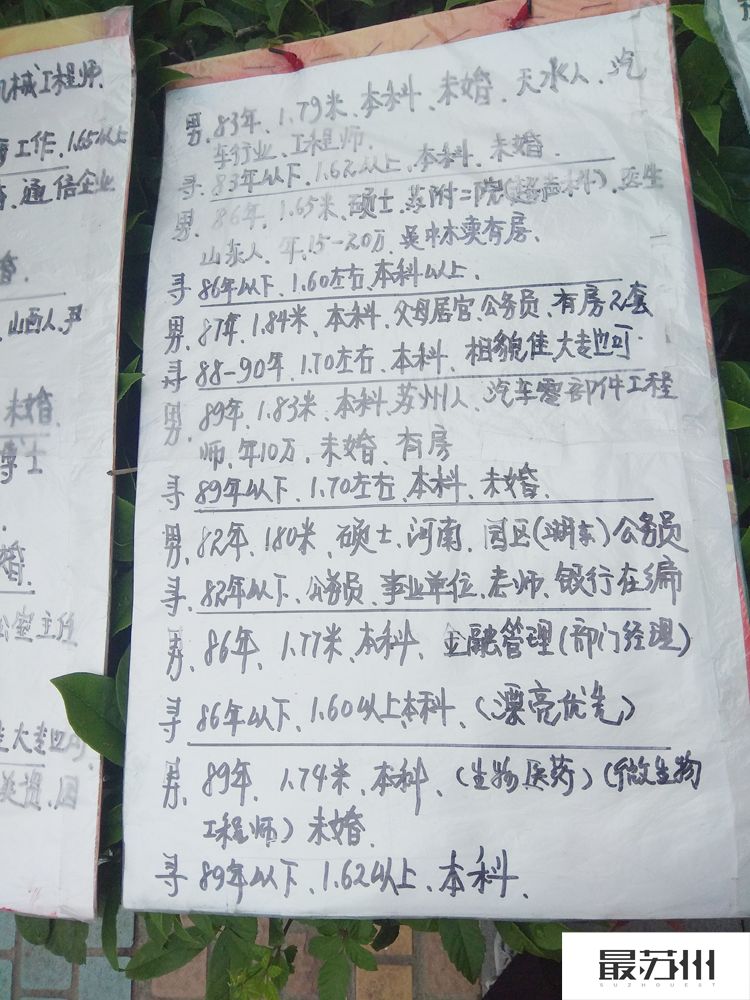 机械工程师.
工作. 1.65以上
通信企业
山西人.
未婚.
博士
婚.
公室主任
大专也可
男. 83年. 1.79米. 本科. 未婚. 天水人. 汽
车行业. 工程师.
寻. 83年以下. 1.62以上. 本科. 未婚.
男. 86年. 1.65米. 硕士. 苏附二院(超声科). 医生
山东人. 年.15-20万 吴中木渎有房.
寻 86年以下. 1.60左右. 本科以上.
男. 87年. 1.84米. 本科. 父母居官 公务员. 有房2套
寻 88-90年. 1.70左右. 本科. 相貌佳大专也可.
男. 89年. 1.83米. 本科. 苏州人. 汽车零部件工程
师. 年10万. 未婚. 有房
寻. 89年以下. 1.70左右. 本科. 未婚.
男. 82年. 180米. 硕士. 河南. 园区(湖东)公务员
寻. 82年以下. 公务员. 事业单位. 老师. 银行在编
男. 86年. 1.77米. 本科. 金融管理(部门经理)
寻 86年以下. 1.60以上本科. (漂亮优先)
男. 89年. 1.74米. 本科. (生物医药)(微生物
工程师) 未婚.
寻 89年以下. 1.62以上. 本科.
最苏州
SUZHOUEST